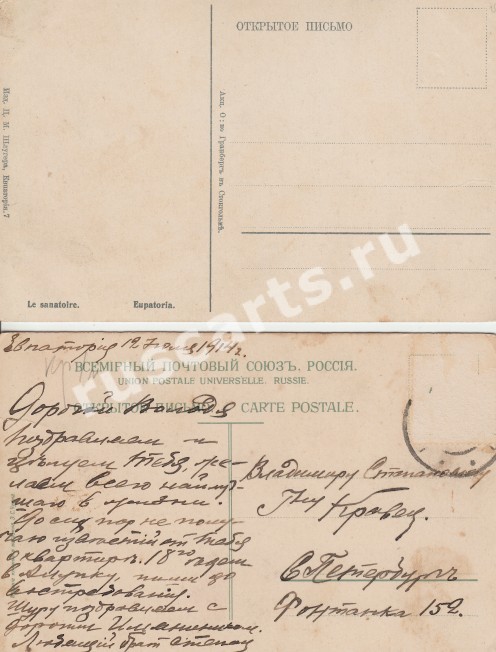 ОТКРЫТОЕ ПИСЬМО
Изд. Ц. М. Шлугера, Евпаторія, 7
Акц. О-во Гранбергъ въ Стокгольмѣ.
Le sanatoire. Eupatoria.
russcarts.ru
Евпаторія 12 Іюля 1914 г.
ВСЕМІРНЫЙ ПОЧТОВЫЙ СОЮЗЪ. РОССІЯ.
UNION POSTALE UNIVERSELLE. RUSSIE.
ОТКРЫТОЕ ПИСЬМО CARTE POSTALE.
Дорогой Володя
Поздравляем и
цѣлуем Тебя, же-
лаем всего найлуч-
шаго в жизни.
До сих пор не полу-
чаю извѣстій от Тебя
о квартирѣ. 18го едем
в Алупку, пиши до
востребованія.
Шуру поздравляем с
дорогим Имянинником.
Любящій брат Степан
Владимиру Степановичу
Г-ну Кравец.
С Петербургъ
Фонтанка 152.